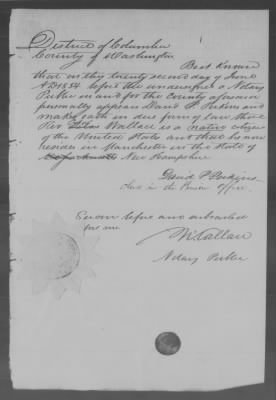 District of Columbia
County of Washington
Be it Known
that on this twenty second day of June
AD 1854 before the undersigned a Notary
Public in and for the County aforesaid
personally appears David P Perkins and
makes oath in due form of law that
Rev Wallace is a native citizen
of the United States and that he now
resides in Manchester in the State of
New Hampshire
David P Perkins
in the Office
Sworn before and subscribed
for me
N Callan
Notary Public